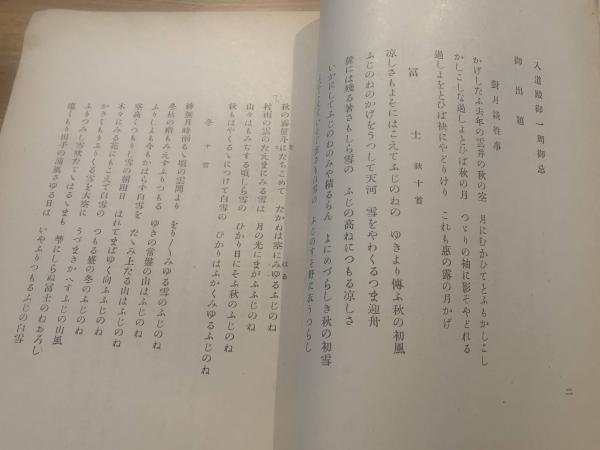 入道殿御一周御忌
御出題
對月談往事
かげしたふ去年の雲井の秋の空　月にむかひてとふもかしこし
かしこしな過しよとひば秋の月　つゞりの袖に影ぞやどれる
過しよをとひば快にやどりけり　これも惠の露の月かげ
冨士　秋十首
凉しさもよそにはこえてふじのねの　ゆきより傳ふ秋の初風
ふじのねのかげをうつして天河　雪をやわくるつま迎舟
麓には殘る暑さもしら雪の　ふじの高ねにつもる凉しさ
いかにしてふじのねのみや積るらん　よにめづらしき秋の初雪
ふじのすそ野に衣うつらし
二
秋の霧籬斗にたちこめて　たかねは空にみゆるふじのね
村雨の雲のたえまにみる雪は　月の光にまがふふじのね
山々はもみぢする頃しら雪の　ひかり日にそふ秋のふじのね
秋もはやくるゝにつけて白雪の　ひかりはふかくみゆるふじのね
冬　十首
神無月時雨るゝ頃の雲間より　をり／＼みゆる雪のふじのね
冬枯の梢もみえずふりつもる　ゆきの常盤の山はふじのね
ふりしよも今もかはらず白雪を　たゝみ上たる山はふじのね
空高くつもりし雪の朝朗日　はれてまばゆく向ふふじのね
木々にみる花にもこえて白雪の　つもる盛の冬のふじのね
かきくもりふりくる雪を大空に　うづまきかへすふじの山風
ふりつみし雪吹たてゝはるゝまも　樂にしらぬ冨士のねおろし
塩くもり田子の浦風さゆる日は　いやふりつもるふじの白雪